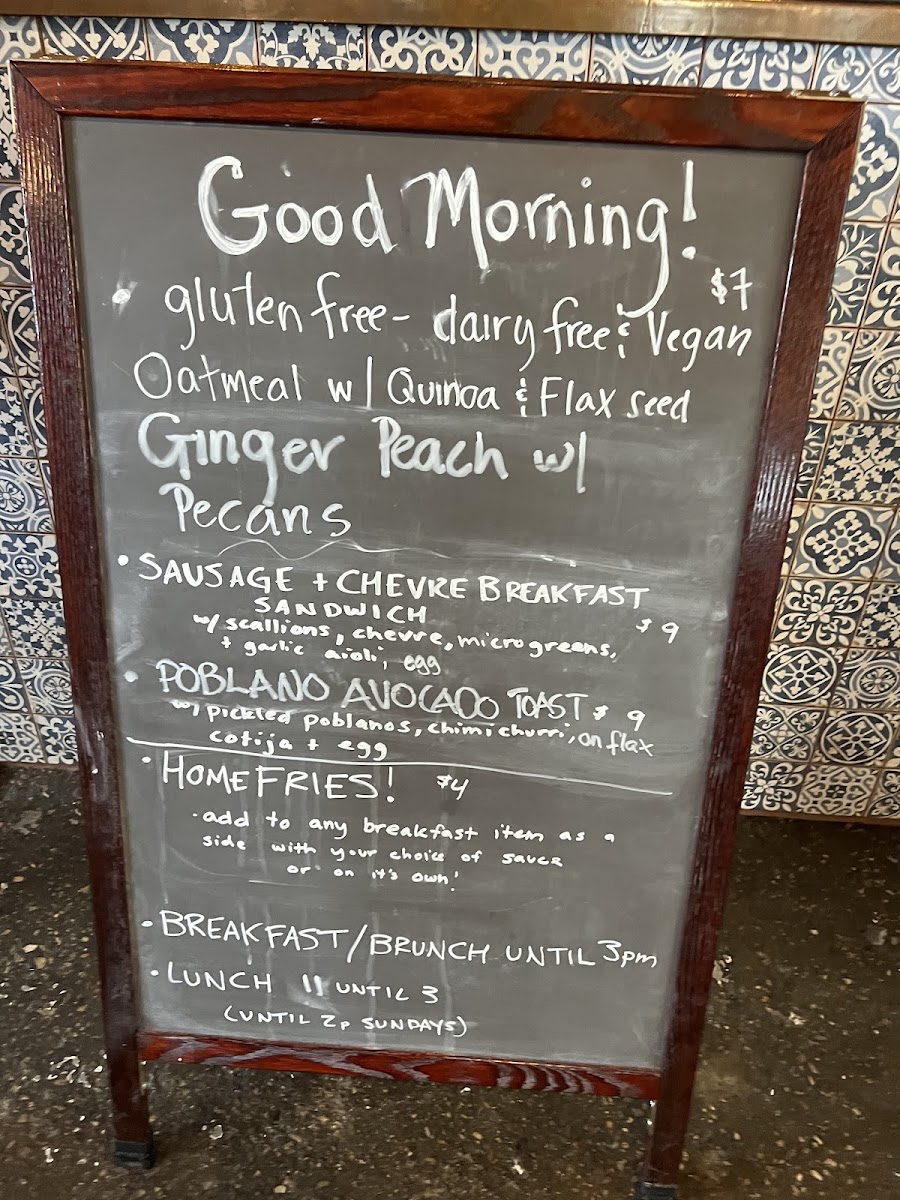 Good Morning!
$7
• gluten free - dairy free & Vegan
Oatmeal w/ Quinoa & Flax seed
Ginger Peach w/
Pecans
• SAUSAGE + CHEVRE BREAKFAST
SANDWICH $9
w/ scallions, chevre, microgreens,
+ garlic aioli, egg
• POBLANO AVOCADO TOAST $9
w/ pickled poblanos, chimichurri, on flax
cotija + egg
• HOME FRIES! $4
• add to any breakfast item as a
side with your choice of sauce
or on it's own!
• BREAKFAST/BRUNCH UNTIL 3pm
• LUNCH 11 UNTIL 3
(UNTIL 2p SUNDAYS)